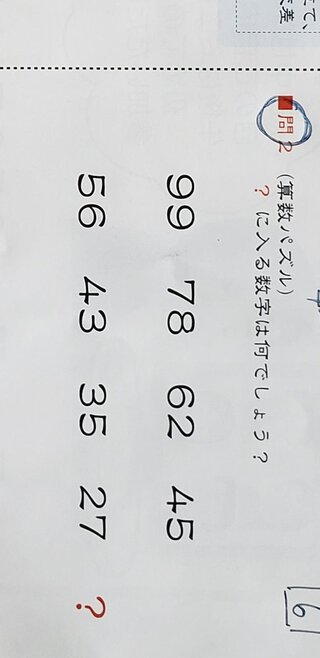 て、
差
6
■問2
(算数パズル)
?に入る数字は何でしょう?
99 78 62 45
56 43 35 27 ?